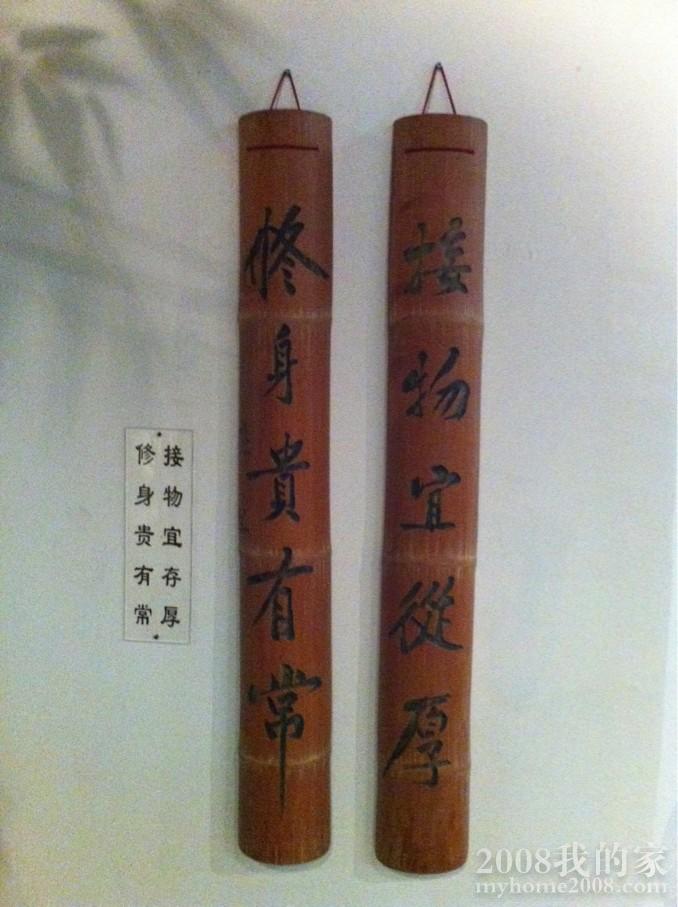 接物宜從厚
修身貴有常
接物宜存厚
修身贵有常
2008我的家
myhome2008.com